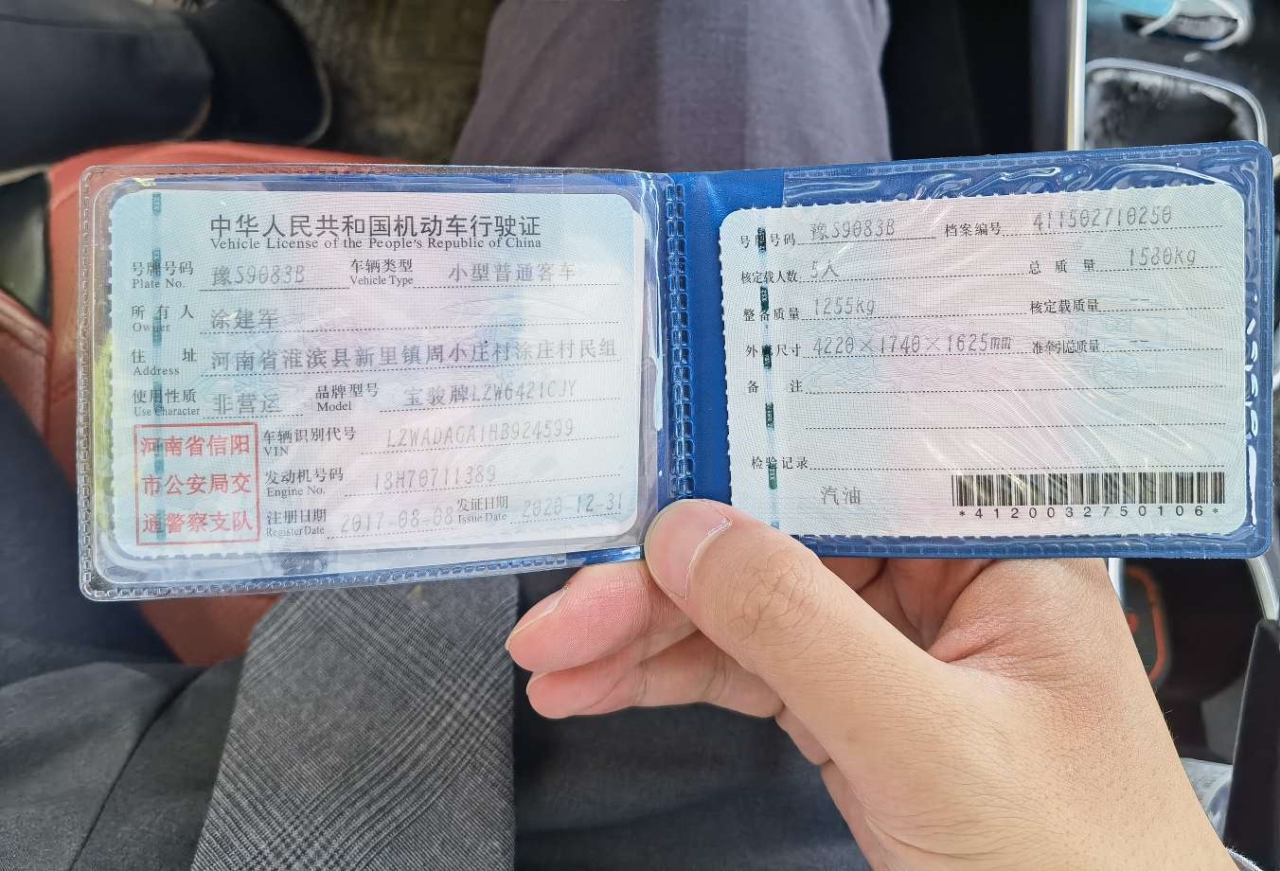 中华人民共和国机动车行驶证
Vehicle License of the People's Republic of China
号牌号码 豫S9083B 车辆类型 小型普通客车
Plate No. Vehicle Type
所有人 涂建军
Owner
住址 河南省淮滨县新里镇周小庄村涂庄村民组
Address
使用性质 非营运 品牌型号 宝骏牌LZW6421CJY
Use Character Model
河南省信阳
市公安局交
通警察支队
车辆识别代号 LZWADAGA1HB924599
VIN
发动机号码 18H70711389
Engine No.
注册日期 2017-08-08 发证日期 2020-12-31
Register Date Issue Date
号牌号码 豫S9083B 档案编号 411502710250
核定载人数 5人 总质量 1580kg
整备质量 1255kg 核定载质量 --
外廓尺寸 4220×1740×1625mm 准牵引总质量 --
备注
检验记录
汽油
*4120032750106*